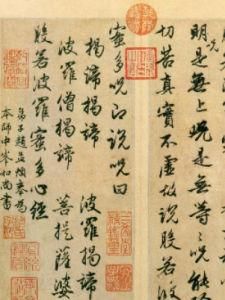 明呪是無上呪是無等〻呪能
切苦真實不虛故說般若波
蜜多呪即說呪曰
揭諦揭諦 波羅揭諦
波羅僧揭諦 菩提薩婆
般若波羅蜜多心經
弟子趙孟頫奉為
本師中峯和尚書